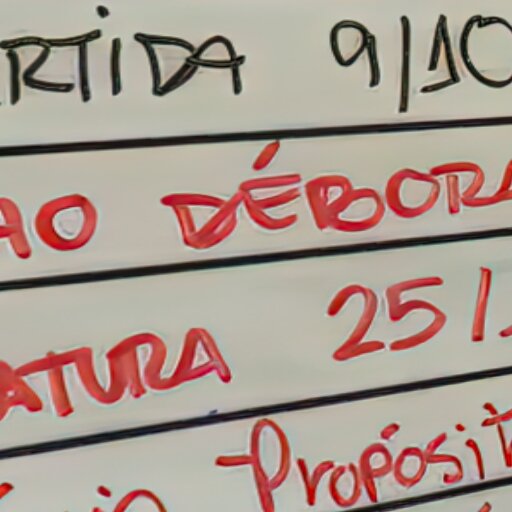 ARTIDA 9/10
ÃO DÉBORA
ATURA 25/
- Propósit